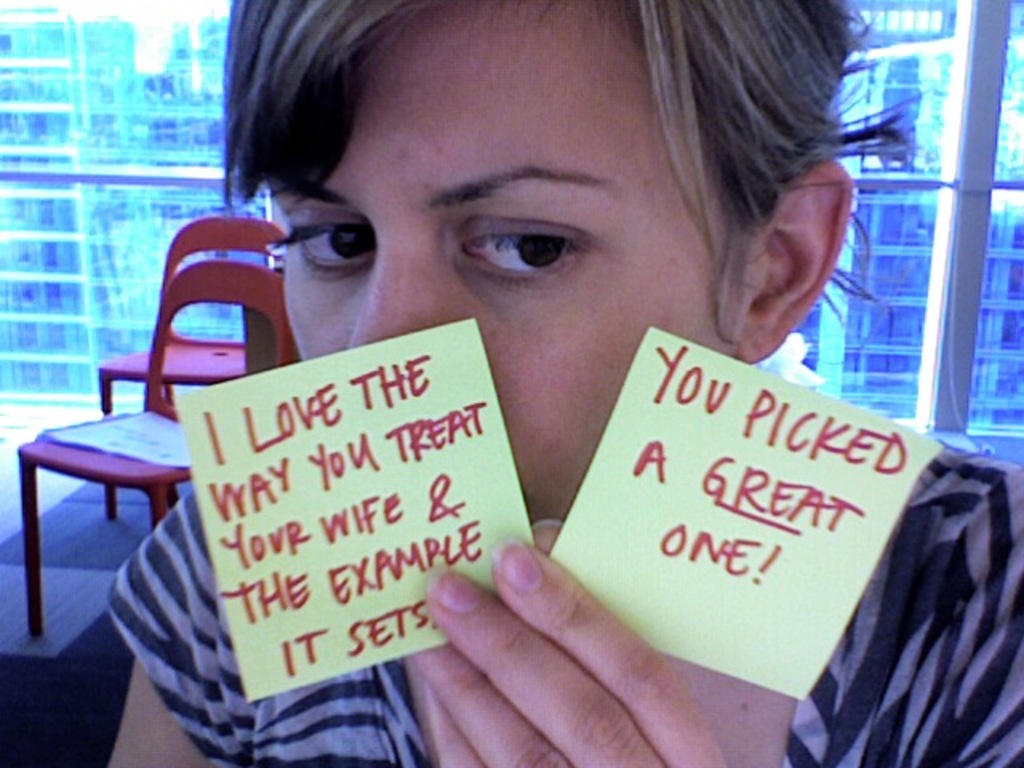 I LOVE THE
WAY YOU TREAT
YOUR WIFE &
THE EXAMPLE
IT SETS.
YOU PICKED
A GREAT
ONE!